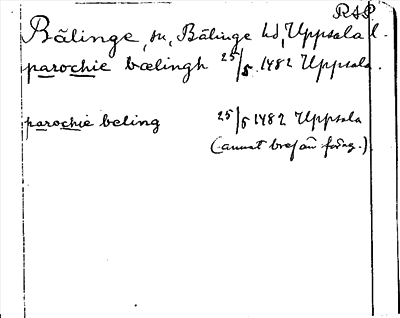 RAP
Bälinge, sn, Bälinge hd, Uppsala l.
parochie bælingh 25/5 1482 Uppsala.
parochie beling 25/5 1482 Uppsala
(annat bref än föreg.)